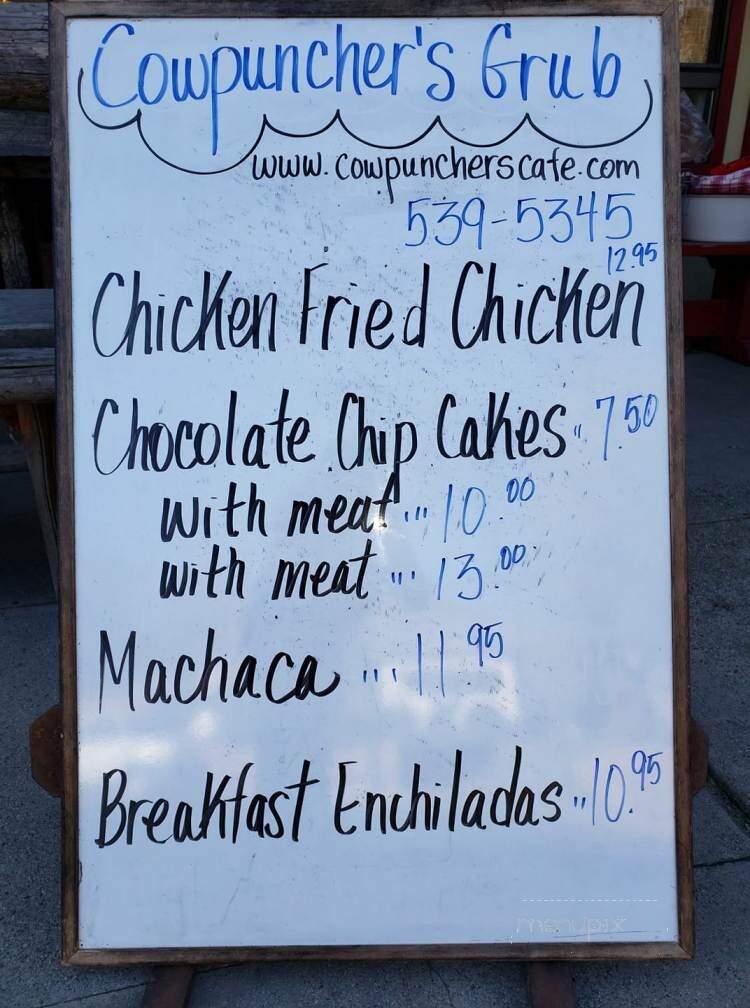 Cowpuncher's Grub
www.cowpuncherscafe.com
539-5345
12.95
Chicken Fried Chicken
Chocolate Chip Cakes .. 7.50
with meat ... 10.00
with meat ... 13.00
Machaca ... 11.95
Breakfast Enchiladas .. 10.95
menupix